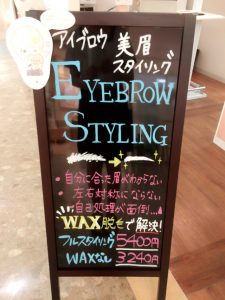 アイブロウ 美眉
スタイリング
EYEBROW
STYLING
・自分に合った眉がわからない
・左右対称にならない
・自己処理が面倒...
WAX脱毛で解決!
フルスタイリング 5400円
WAXなし 3240円